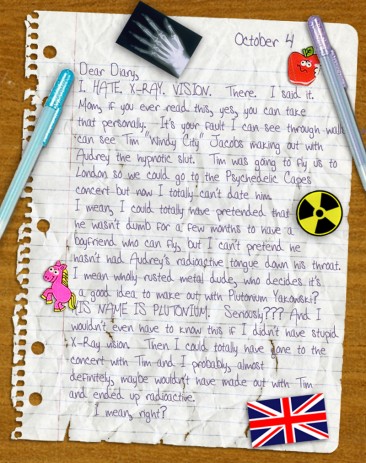 October 4
Dear Diary,
I HATE X-RAY VISION. There. I said it.
Mom, if you ever read this, yes, you can take
that personally. It's your fault I can see through walls
can see Tim "Windy City" Jacobs making out with
Audrey the hypnotic slut. Tim was going to fly us to
London so we could go to the Psychedelic Capes
concert but now I totally can't date him.
I mean, I could totally have pretended that
he wasn't dumb for a few months to have a
boyfriend who can fly, but I can't pretend he
hasn't had Audrey's radioactive tongue down his throat.
I mean wholly rusted metal dude, who decides it's
a good idea to make out with Plutonium Yakowski?
HIS NAME IS PLUTONIUM. Seriously??? And I
wouldn't even have to know this if I didn't have stupid
X-Ray vision. Then I could totally have gone to the
concert with Tim and I probably, almost
definitely, maybe wouldn't have made out with Tim
and ended up radioactive.
I mean, right?